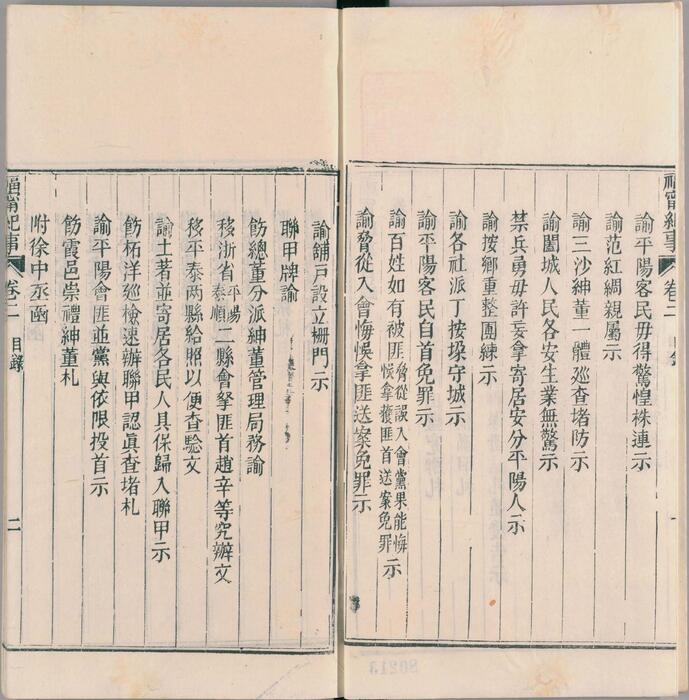 福甯紀事 卷二 目錄 一
諭平陽客民毋得驚惶株連示
諭范紅綢親屬示
諭三沙紳董一體廵查堵防示
諭闔城人民各安生業無驚示
禁兵勇毋許妄拿寄居安分平陽人示
諭按鄉重整團練示
諭各社派丁按垜守城示
諭平陽客民自首免罪示
諭百姓如有被匪脅從誤入會黨果能悔悞拿獲匪首送案免罪示
諭脅從入會悔悞拿匪送案免罪示
諭舖戶設立柵門示
聯甲牌諭
飭總董分派紳董管理局務諭
移浙省平陽泰順二縣會拏匪首趙辛等究辦文
移平泰两縣給照以便查驗文
諭土著並寄居各民人具保歸入聯甲示
飭柘洋廵檢速辦聯甲認眞查堵札
諭平陽會匪並黨與依限投首示
飭霞邑崇禮紳董札
附徐中丞函
福甯紀事 卷二 目錄 二
80213